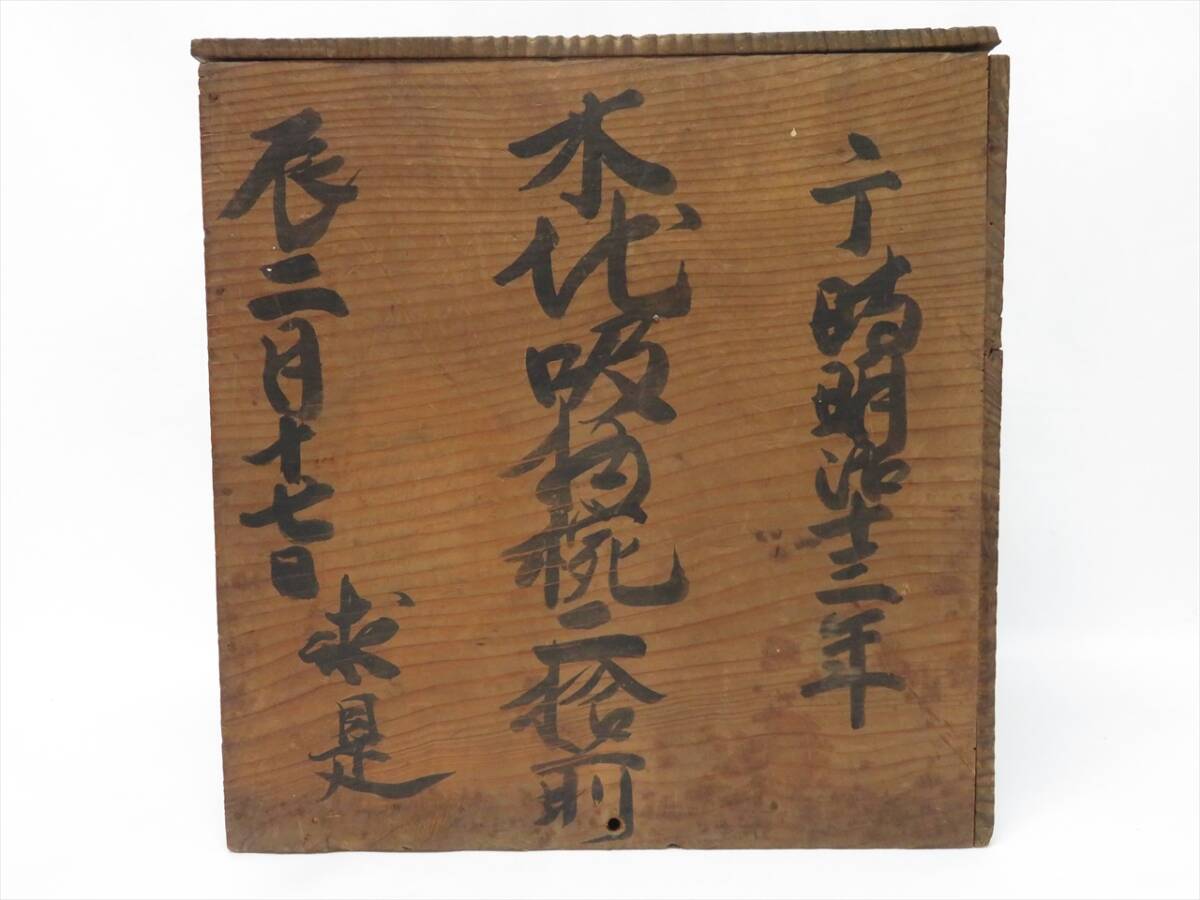 于時明治十三年
木代吸物椀二拾前
辰二月十七日
求是